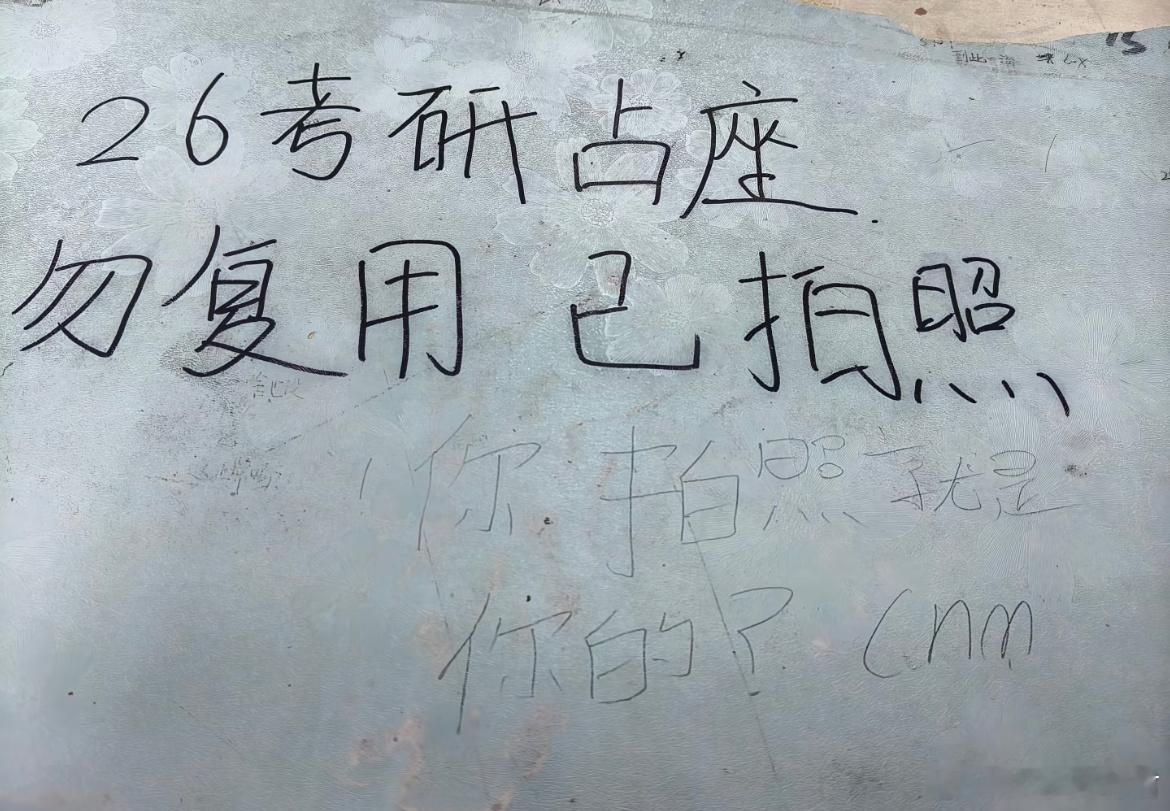 26考研占座.
勿复用 已拍照
你拍照了就是
你的? cnm